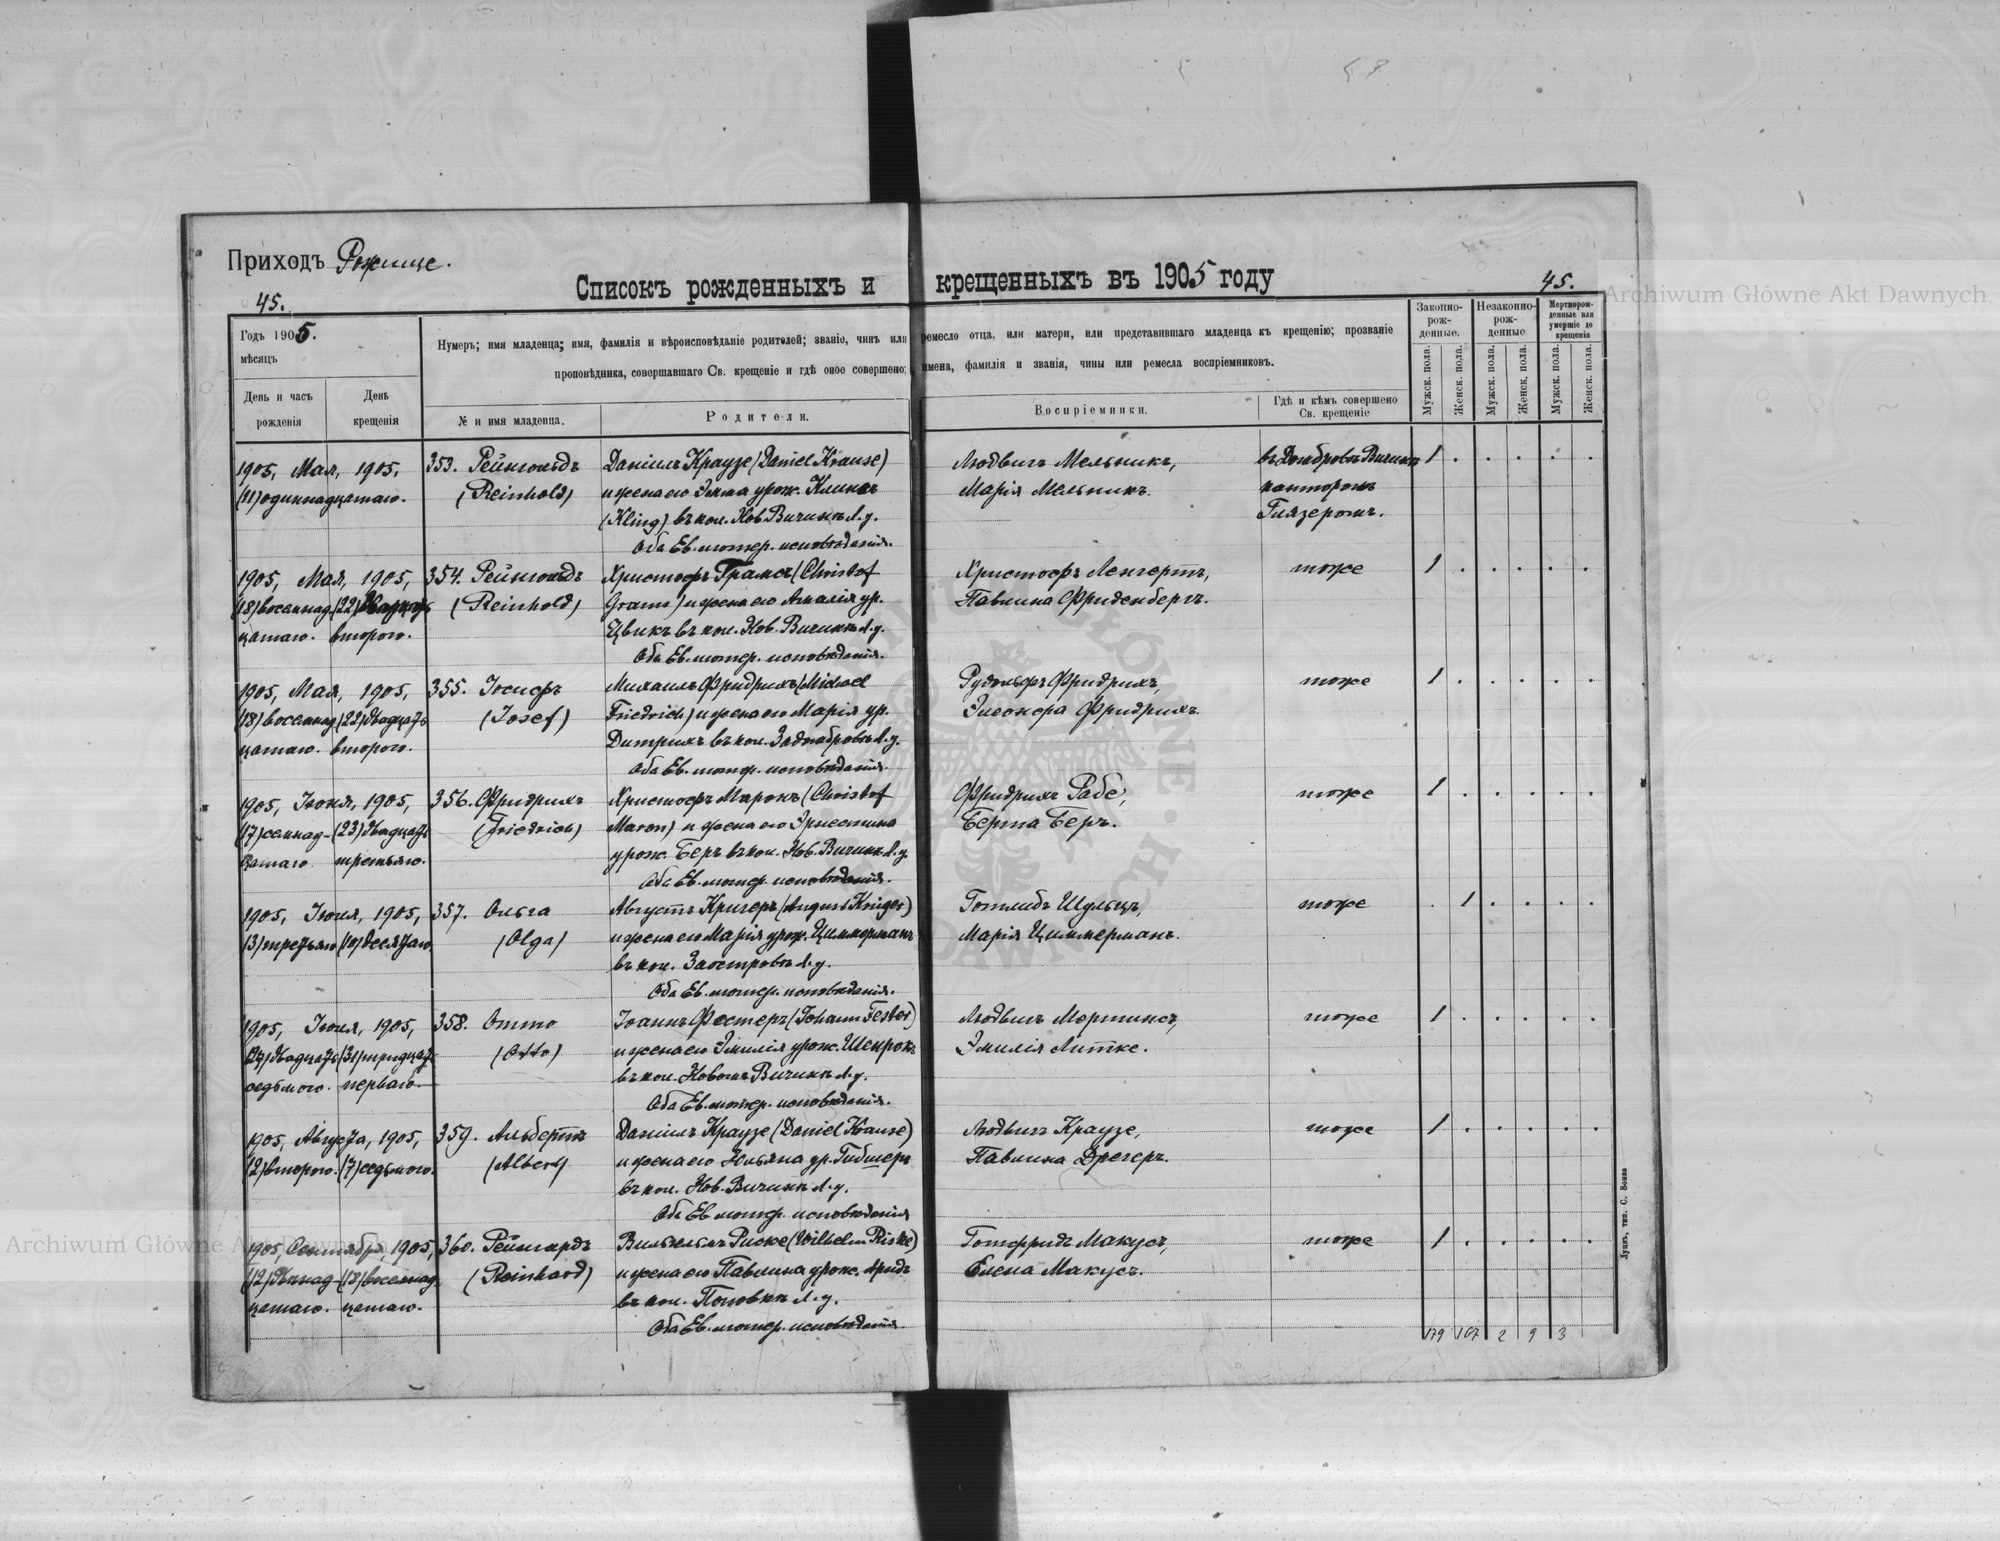 Приходъ Рожище.
Списокъ рожденныхъ и крещенныхъ въ 1905 году
45.
45.
Годъ 1905.
мѣсяцъ
День и часъ рожденія
День крещенія
Нумеръ; имя младенца; имя, фамилія и вѣроисповѣданіе родителей; званіе, чинъ или ремесло отца, или матери, или представившаго младенца къ крещенію; прозваніе
проповѣдника, совершавшаго Св. крещеніе и гдѣ оное совершено; имена, фамилія и званія, чины или ремесла воспріемниковъ.
№ и имя младенца.
Родители.
Воспріемники.
Гдѣ и кѣмъ совершено Св. крещеніе
Законно-рож-денные.
Незаконно-рож-денные
Мертворож-денные или умершіе до крещенія
Мужск. пола.
Женск. пола.
Мужск. пола.
Женск. пола.
Мужск. пола.
Женск. пола.
1905, Мая, 1905, 353. Рейнгольдъ Даніилъ Краузе (Daniel Krause) Людвигъ Мельникъ, 1 . . . . .
(11) одиннадцатаго. (Reinhold) и жена его Эмма урож. Клингъ Марія Мельникъ. канторомъ
(Kling) въ кол. Нов. Вичинѣ Л. у. Глязеромъ.
Оба Ев. лютер. исповѣданія.
1905, Мая, 1905, 354. Рейнгольдъ Христофъ Грамсъ (Christof Христофъ Ленгертъ, тоже 1 . . . . .
(18) восемнад (22) (Reinhold) Grams) и жена его Амалія ур. Павлина Фриденбергъ.
цатаго. второго. Цвикъ въ кол. Нов. Вичинѣ Л. у.
Оба Ев. лютер. исповѣданія.
1905, Мая, 1905, 355. Іосифъ Михаилъ Фридрихъ (Michael Рудольфъ Фридрихъ, тоже 1 . . . . .
(18) восемнад (22) двадцать (Josef) Friedrich) и жена его Марія ур. Элеонора Фридрихъ.
цатаго. второго. Дитрихъ въ кол. Л. у.
Оба Ев. лютер. исповѣданія.
1905, Іюня, 1905, 356. Фридрихъ Христофъ Марокъ (Christof Фридрихъ Рабе, тоже 1 . . . . .
(17) семнад- (23) двадцать (Friedrich) и жена его Эрнестина Берта Беръ.
цатаго третьяго. урож. Беръ въ кол. Нов. Вичинѣ Л. у.
Оба Ев. лютер. исповѣданія.
1905, Іюля, 1905, 357. Ольга Августъ Кригеръ (August Kriger) Готлибъ Шульцъ, тоже . 1 . . . .
(3) третьяго (10) десятаго (Olga) и жена его Марія урож. Циммерманъ Марія Циммерманъ.
въ кол. Заостровѣ Л. у.
Оба Ев. лютер. исповѣданія.
1905, Іюля, 1905, 358. Отто Іоаннъ Фестеръ (Johann Fester) Людвигъ Мартинсъ, тоже 1 . . . . .
(27) двадцать (31) тридцать (Otto) и жена его Эмилія урож. Шенрокъ Эмилія Литке.
седьмого. перваго. въ кол. Новомъ Вичинѣ Л. у.
Оба Ев. лютер. исповѣданія.
1905, Августа, 1905, 359. Альбертъ Даніилъ Краузе (Daniel Krause) Людвигъ Краузе, тоже 1 . . . . .
(2) второго. (7) седьмого. (Albert) и жена его Юльяна ур. Павлина Дрегеръ.
въ кол. Нов. Вичинѣ Л. у.
Оба Ев. лютер. исповѣданія
1905, Сентября, 1905, 360. Рейнгардъ Вильгельмъ Риске (Wilhelm Riske) Готфридъ Макусъ, тоже 1 . . . . .
(12) двѣнад- (18) восемнад (Reinhard) и жена его Павлина урож. Елена Макусъ.
цатаго. цатаго. въ кол. Поповкѣ Л. у.
Оба Ев. лютер. исповѣданія
179 167 2 9 3
Луцкъ, тип. С. Бонка
Archiwum Główne Akt Dawnych
Archiwum Główne Akt Dawnych